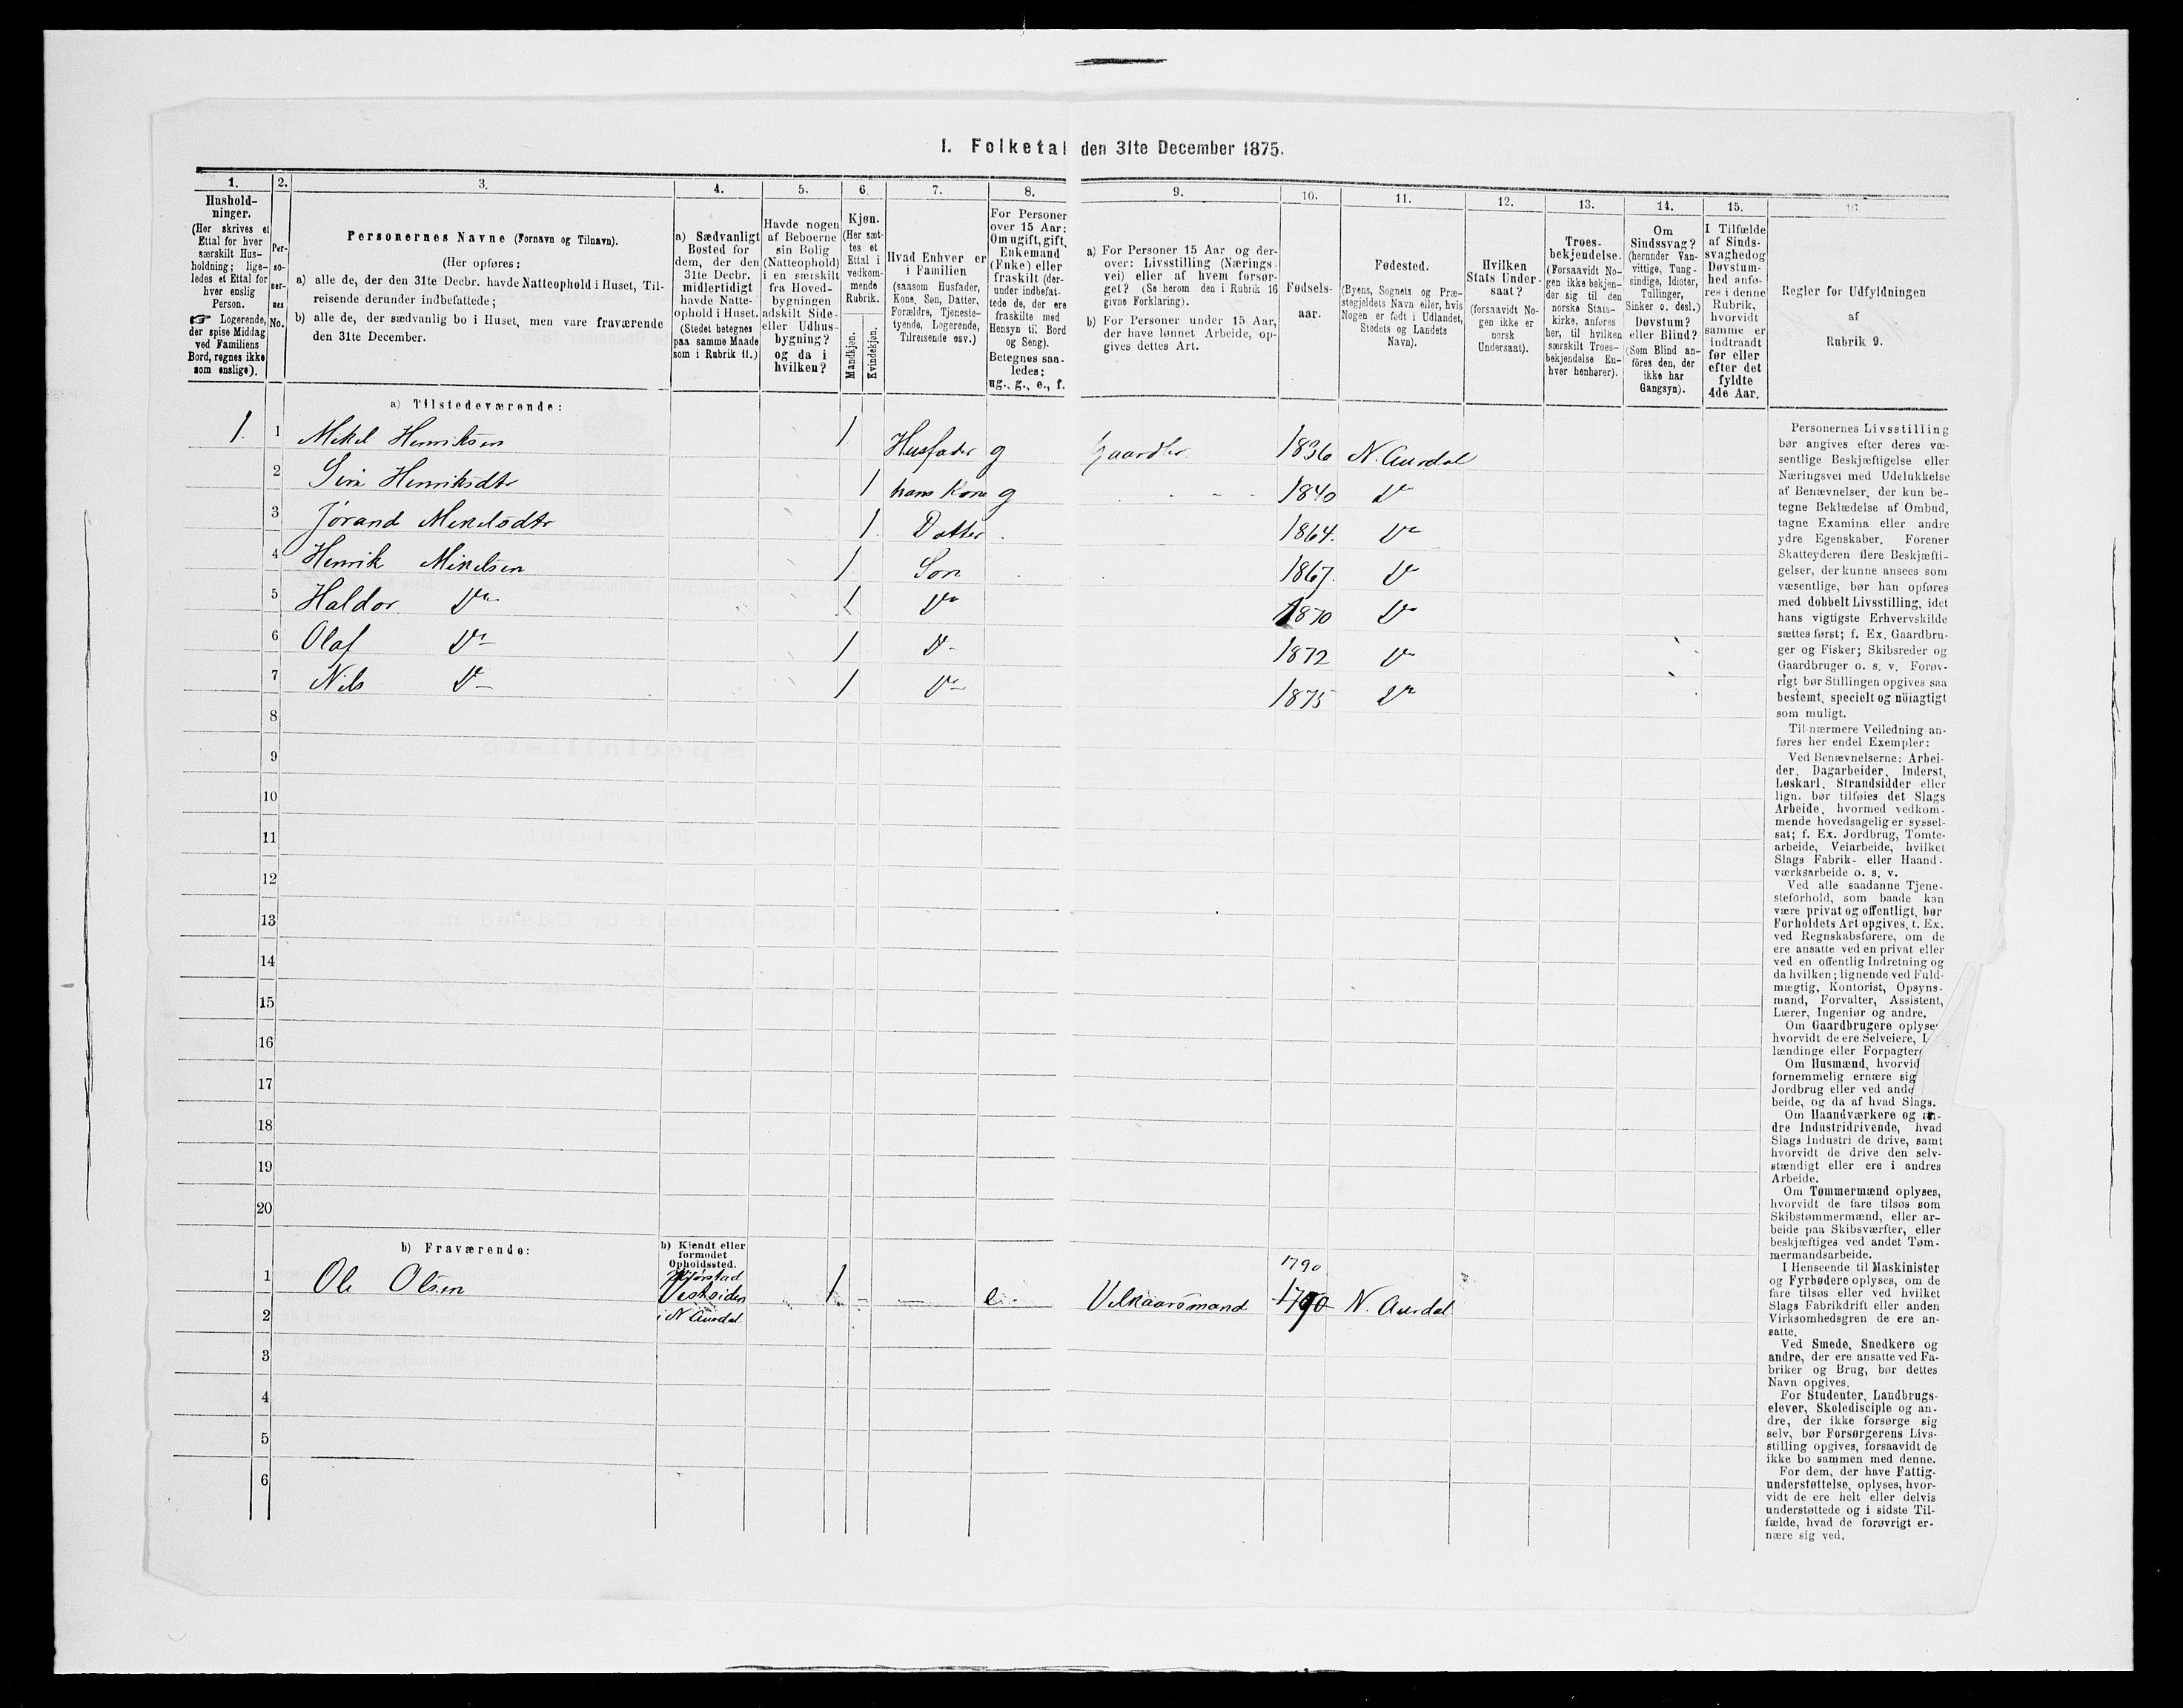 I. Folketal den 31te December 1875.
1.
Hushold-
ninger.
(Her skrives et
Ettal for hver
særskilt Hus-
holdning; lige-
ledes et Ettal for
hver enslig
Person.
☞ Logerende,
der spise Middag
ved Familiens
Bord, regnes ikke
som enslige).
2.
Per-
so-
ner-
nes
No.
3.
Personernes Navne (Fornavn og Tilnavn).
(Her opføres:
a) alle de, der den 31te Decbr. havde Natteophold i Huset, Til-
reisende derunder indbefattede;
b) alle de, der sædvanlig bo i Huset, men vare fraværende
den 31te December.
4.
a) Sædvanligt
Bosted for
dem, der den
31te Decbr.
midlertidigt
havde Natte-
ophold i Huset.
(Stedet betegnes
paa samme Maade
som i Rubrik 11.)
5.
Havde nogen
af Beboerne
sin Bolig
(Natteophold)
i en særskilt
fra Hoved-
bygningen
adskilt Side-
eller Udhus-
bygning?
og da i
hvilken?
6.
Kjøn.
(Her sæt-
tes et
Ettal i
vedkom-
mende
Rubrik.
Mandkjøn.
Kvindekjøn.
7.
Hvad Enhver er
i Familien
(saasom Husfader,
Kone, Søn, Datter,
Forældre, Tjeneste-
tyende, Logerende,
Tilreisende osv.)
8.
For Personer
over 15 Aar:
Om ugift, gift,
Enkemand
(Enke) eller
fraskilt (der-
under indbefat-
tede de, der ere
fraskilte med
Hensyn til Bord
og Seng).
Betegnes saa-
ledes:
ug., g., e., f.
9.
a) For Personer 15 Aar og der-
over: Livsstilling (Nærings-
vei) eller af hvem forsør-
get? (Se herom den i Rubrik 16
givne Forklaring).
b) For Personer under 15 Aar,
der have lønnet Arbeide, op-
gives dettes Art.
10.
Fødsels-
aar.
11.
Fødested.
(Byens, Sognets og Præ-
stegjeldets Navn eller, hvis
Nogen er født i Udlandet,
Stedets og Landets
Navn).
12.
Hvilken
Stats Under-
saat?
(forsaavidt No-
gen ikke er
norsk
Undersaat).
13.
Troes-
bekjendelse.
(Forsaavidt No-
gen ikke bekjen-
der sig til den
norske Stats-
kirke, anføres
her, til hvilken
særskilt Troes-
bekjendelse En-
hver henhører).
14.
Om
Sindssvag?
(herunder Van-
vittige, Tung-
sindige, Idioter,
Tullinger,
Sinker o. desl.)
Døvstum?
eller Blind?
(Som Blind an-
føres den, der
ikke har
Gangsyn).
15.
I Tilfælde
af Sinds-
svaghed og
Døvstum-
hed anfø-
res i denne
Rubrik,
hvorvidt
samme er
indtraadt
før eller
efter det
fyldte
4de Aar.
16
Regler for Udfyldningen
af
Rubrik 9.
a) Tilstedeværende:
1. 1 Mikel Henriksen 1 Husfader g Gaardbr. 1836 N. Aurdal
2 Siri Henriksdtr 1 hans Kone g 1840 Do
3 Jørand Mikelsdtr 1 Datter 1864. Do
4 Henrik Mikelsen 1 Søn 1867. Do
5 Haldor Do 1 Do 1870 Do
6 Olaf Do 1 Do 1872 Do
7 Nils Do 1 Do 1875 Do
8
9
10
11
12
13
14
15
16
17
18
19
20
b) Fraværende:
b) Kjendt eller
formodet
Opholdssted.
1 Ole Olsen
Vestsiden
i N Aurdal
1 e. Velkaarsmand
1790
1790 N. Aurdal
2
3
4
5
6
Personernes Livsstilling
bør angives efter deres væ-
sentlige Beskjæftigelse eller
Næringsvei med Udelukkelse
af Benævnelser, der kun be-
tegne Beklædelse af Ombud,
tagne Examina eller andre
ydre Egenskaber. Forener
Skatteyderen flere Beskjæfti-
gelser, der kunne ansees som
væsentlige, bør han opføres
med dobbelt Livsstilling, idet
hans vigtigste Erhvervskilde
sættes først; f. Ex. Gaardbru-
ger og Fisker; Skibsreder og
Gaardbruger o. s. v. Forøv-
rigt bør Stillingen opgives saa
bestemt, specielt og nöiagtigt
som muligt.
Til nærmere Veiledning an-
føres her endel Exempler:
Ved Benævnelserne: Arbei-
der, Dagarbeider, Inderst,
Løskarl, Strandsidder eller
lign. bør tilføies det Slags
Arbeide, hvormed vedkom-
mende hovedsagelig er syssel-
sat; f. Ex. Jordbrug, Tomte-
arbeide, Veiarbeide, hvilket
Slags Fabrik- eller Haand-
værksarbeide o. s. v.
Ved alle saadanne Tjene-
steforhold, som baade kan
være privat og offentligt, bør
Forholdets Art opgives, t. Ex.
ved Regnskabsførere, om de
ere ansatte ved en privat eller
ved en offentlig Indretning og
da hvilken; lignende ved Fuld-
mægtig, Kontorist, Opsyns-
mand, Forvalter, Assistent,
Lærer, Ingeniør og andre.
Om Gaardbrugere oplyse
hvorvidt de ere Selveiere, L
lændinge eller Forpagter
Om Husmænd, hvorvid
fornemmelig ernære sig
Jordbrug eller ved ande
beide, og da af hvad Slags.
Om Haandværkere og an-
dre Industridrivende, hvad
Slags Industri de drive, samt
hvorvidt de drive den selv-
stændigt eller ere i andres
Arbeide.
Om Tømmermænd oplyses,
hvorvidt de fare tilsøs som
Skibstømmermænd, eller ar-
beide paa Skibsværfter, eller
beskjæftiges ved andet Tøm-
mermandsarbeide.
I Henseende til Maskinister
og Fyrbødere oplyses, om de
fare tilsøs eller ved hvilket
Slags Fabrikdrift eller anden
Virksomhedsgren de ere an-
satte.
Ved Smede, Snedkere og
andre, der ere ansatte ved Fa-
briker og Brug, bør dettes
Navn opgives.
For Studenter, Landbrugs-
elever, Skoledisciple og an-
dre, der ikke forsørge sig
selv, bør Forsørgerens Livs-
stilling opgives, forsaavidt de
ikke bo sammen med denne.
For dem, der have Fattig-
understøttelse, oplyses, hvor-
vidt de ere helt eller delvis
understøttede og i sidste Til-
fælde, hvad de forøvrigt er-
nære sig ved.